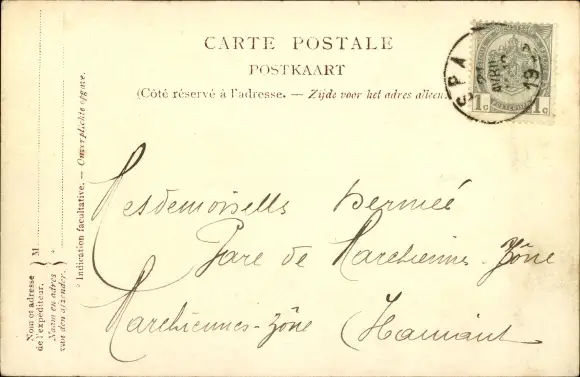 CARTE POSTALE
POSTKAART
(Côté réservé à l'adresse. — Zijde voor het adres alleen.)
SPA
21
AVRIL
19
1c 1c
Mesdemoiselles Hermeé
Gare de Marchiennes-Zône
Marchiennes-Zône Hainaut
Nom et adresse
de l'expéditeur.
Naam en adres
van den afzender.
M.
* Indication facultative. — Onverplichte opgave.